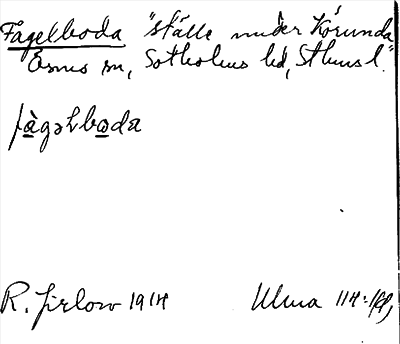 Fagelboda "ställe under Körunda
Ösmo sn, Sotholms hd, Sthms l."
fàgəlboda
R. Jirlow 1914 Ulma 114:1